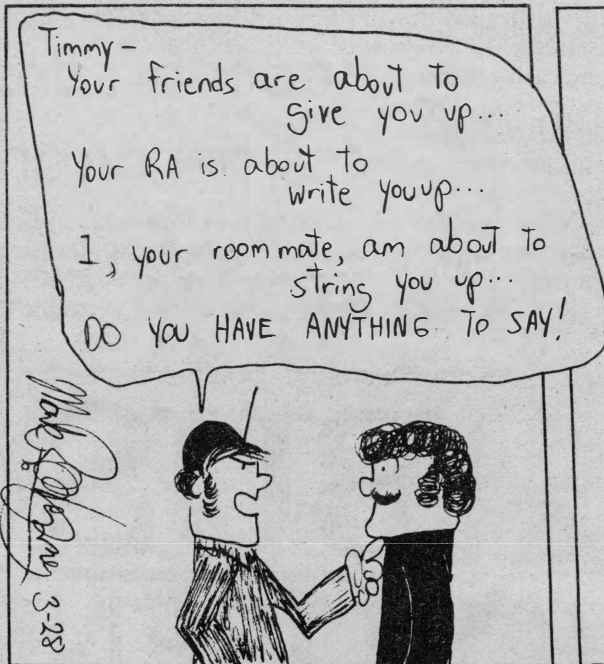 Timmy -
Your friends are about to
give you up...
Your RA is about to
write you up...
I, your roommate, am about to
string you up...
DO YOU HAVE ANYTHING TO SAY!
Mark
3-28